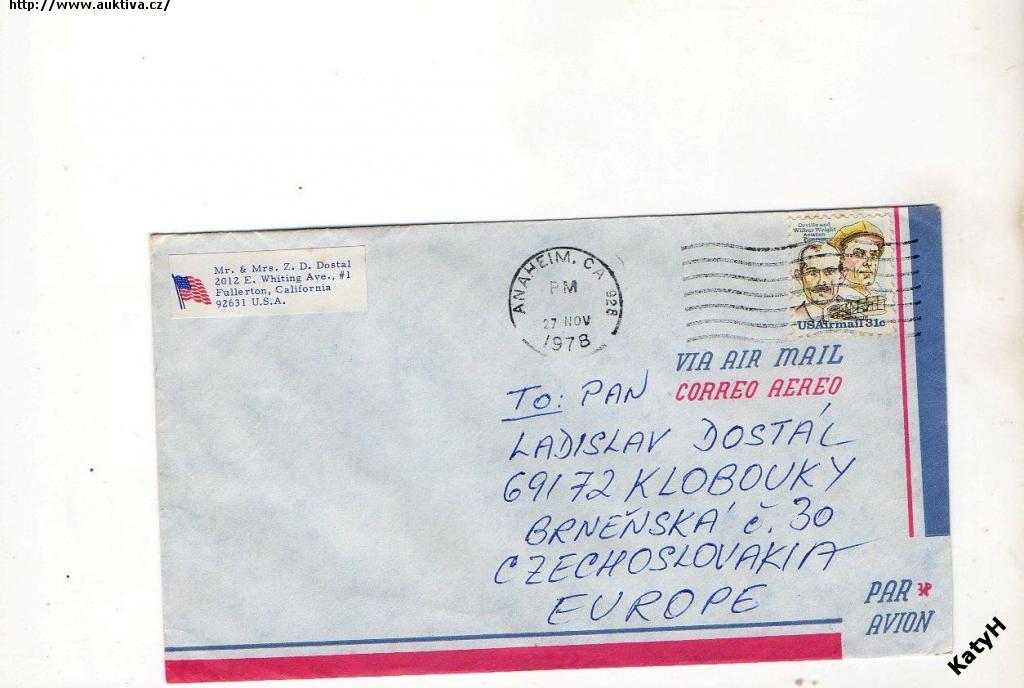 http://www.auktiva.cz/
Mr. & Mrs. Z. D. Dostal
2012 E. Whiting Ave., #1
Fullerton, California
92631 U.S.A.
ANAHEIM, CA 928
PM
27 NOV
1978
Orville and
Wilbur Wright
Aviation
Pioneers
USAirmail 31c
VIA AIR MAIL
CORREO AEREO
To: PAN
LADISLAV DOSTÁL
69172 KLOBOUKY
BRNEŇSKÁ č. 30
CZECHOSLOVAKIA
EUROPE
PAR
AVION
KatyH